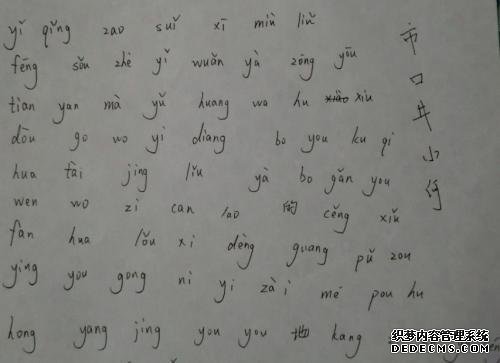 yǐ qǐng zao suǐ xī miǔ liǔ
fēng sǒu zhè yǐ wuǎn yà zōng yōu
tian yan mà yǔ huang wa hu xiu
dòu go wo yi diang bo you ku qi
hua tài jing liu yà bo gǎn you
wen wo zi can lao 的 cěng xiǔ
fàn hua lǒu xi dèng guang pǔ zou
ying you gong ni yi zài mé pou hu
hong yang jing you you 地 kang
市口井小
织梦内容管理系统
DEDECMS.COM